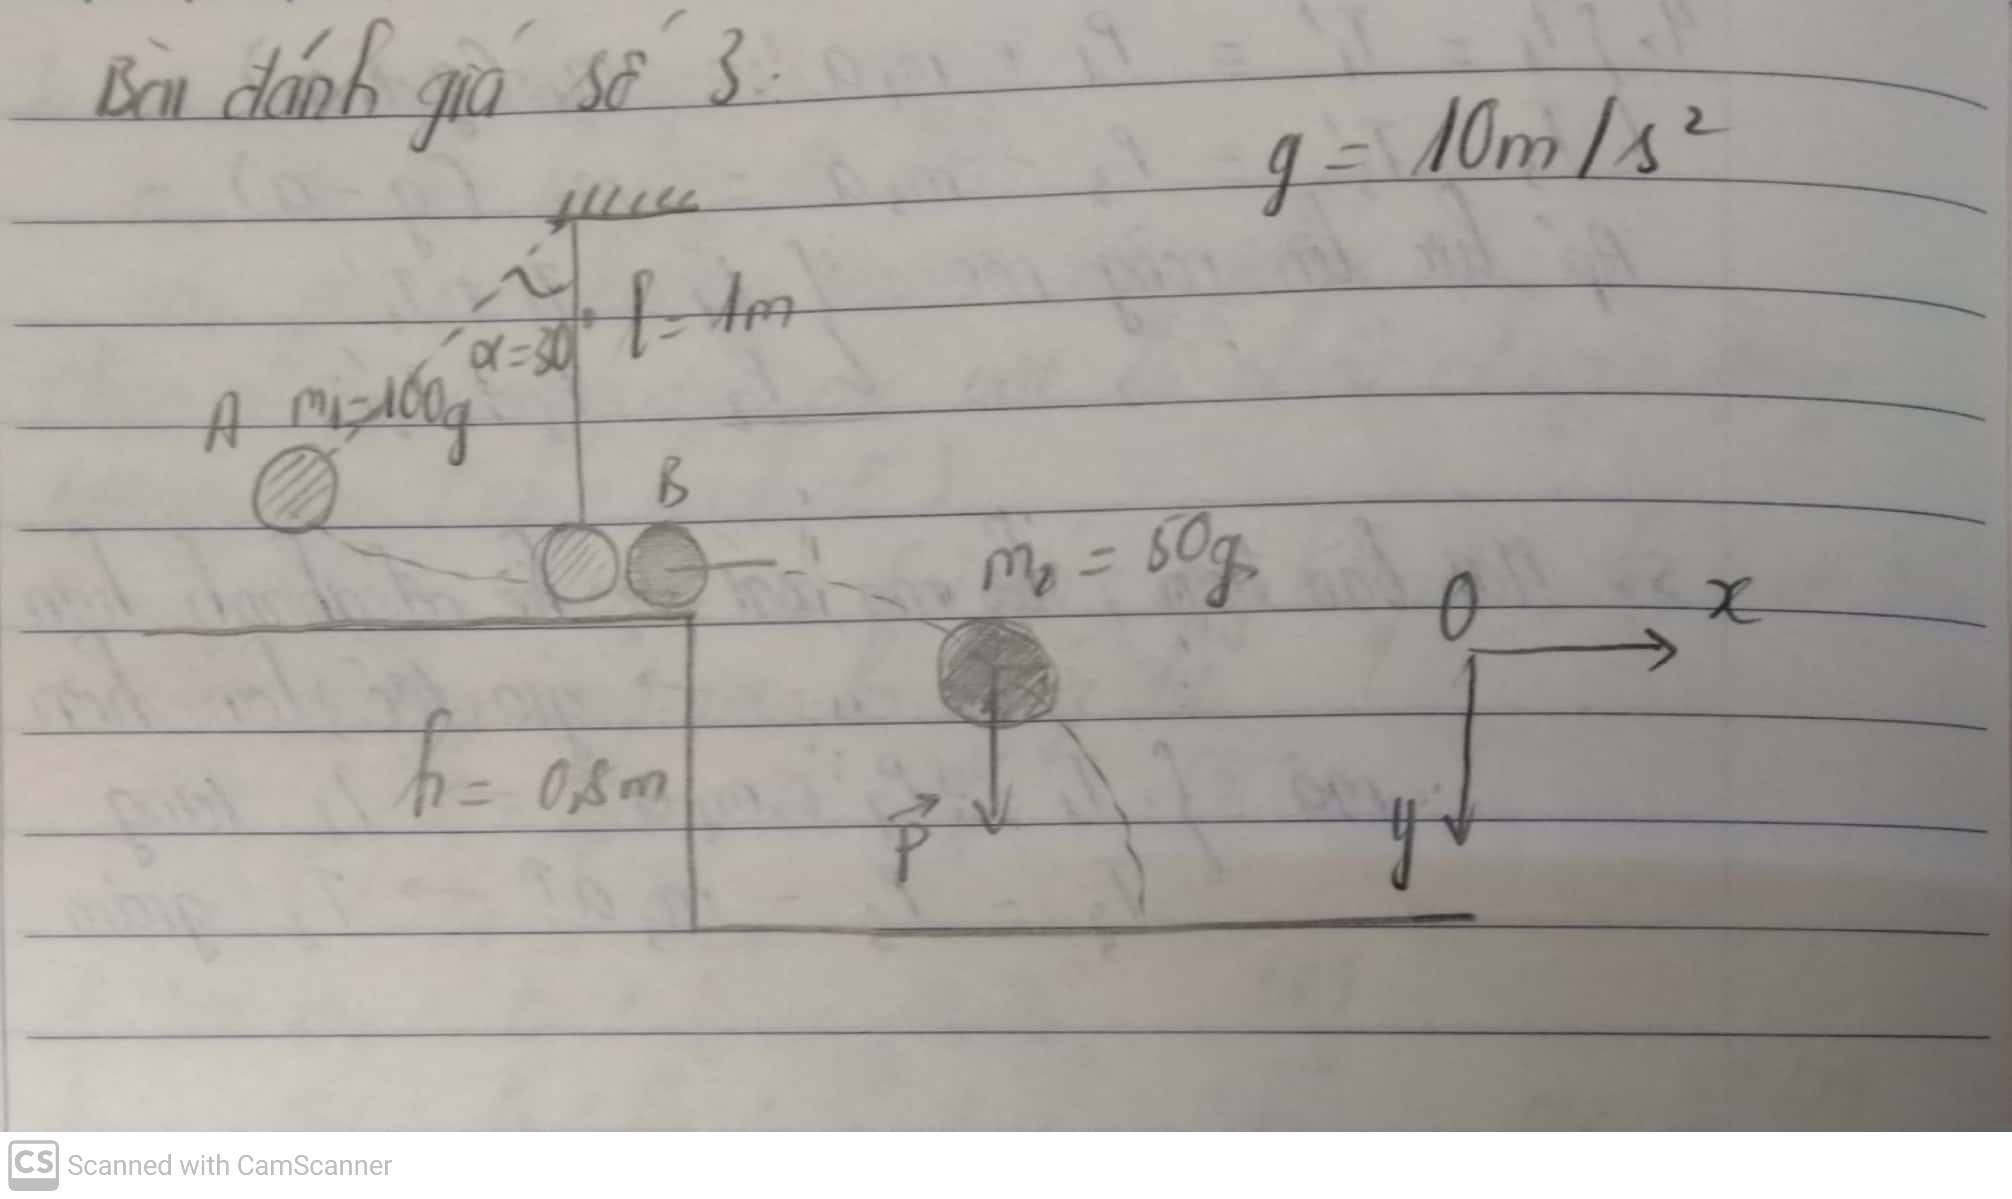 Bài đánh giá số 3:
g = 10m/s²
l = 1m
α=30
A m₁=100g
B
m₂ = 50g
O x
h = 0,8m
P y
CS Scanned with CamScanner